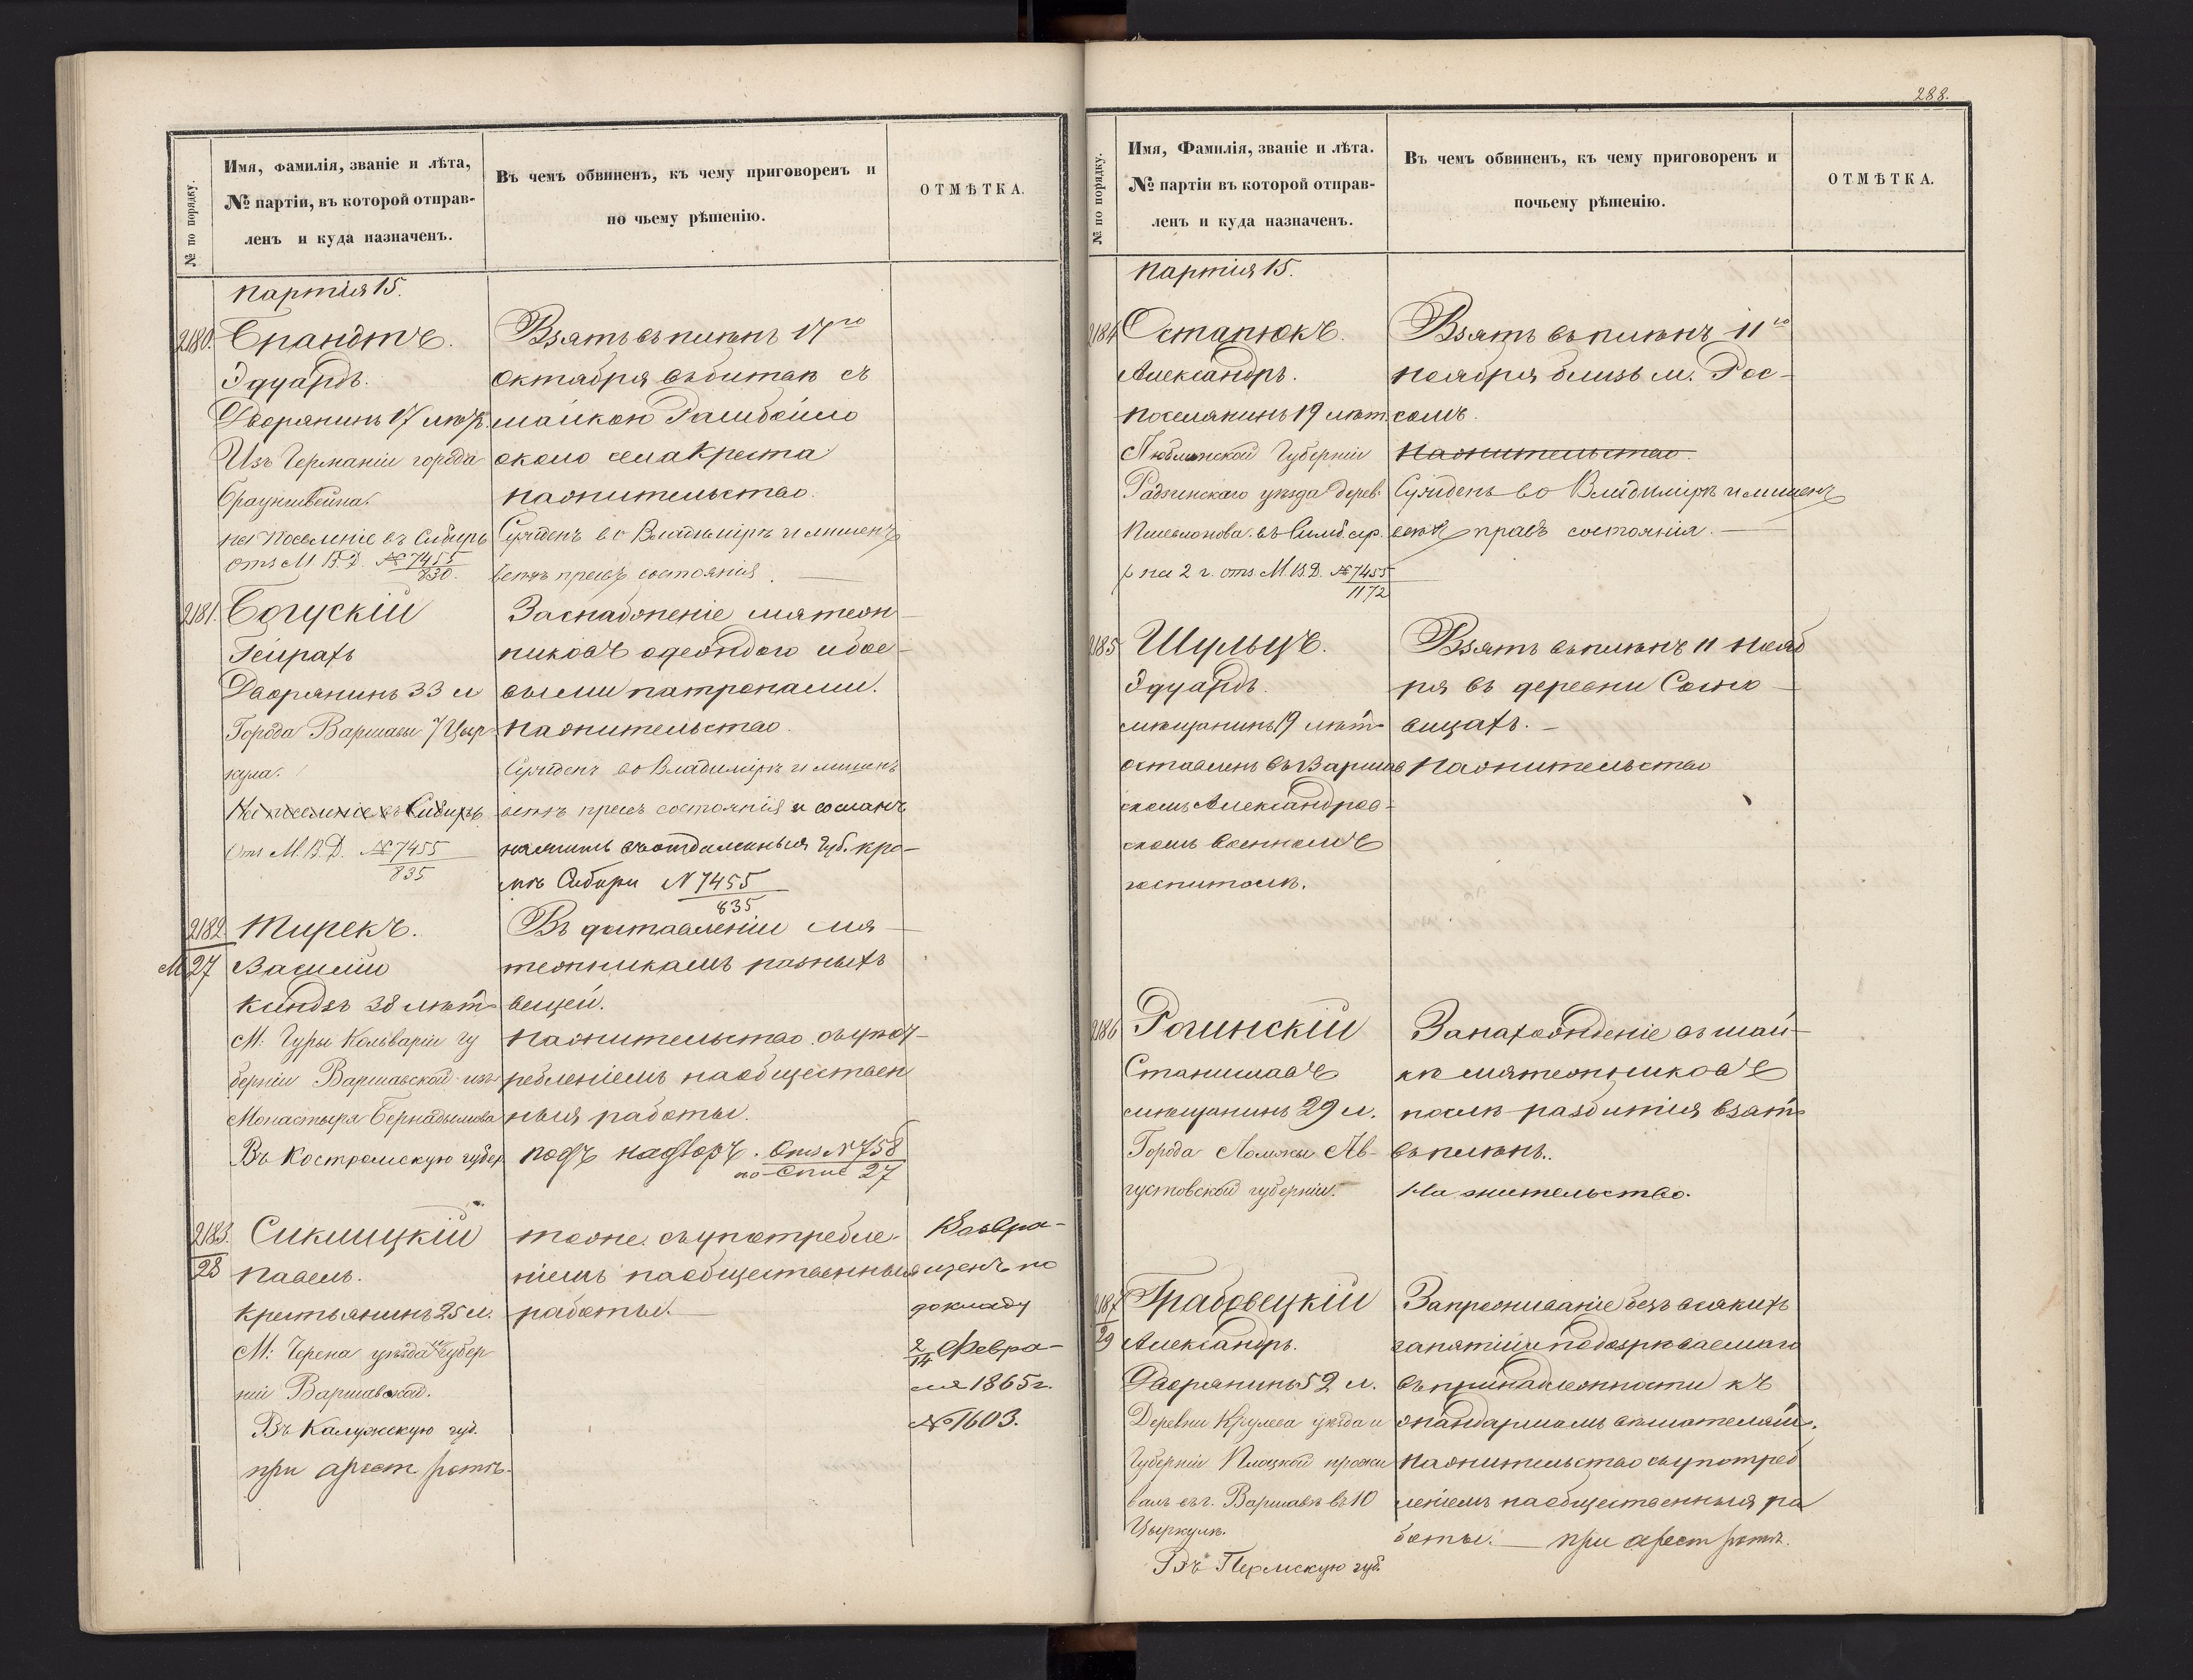 № по порядку.
Имя, фамилія, званіе и лѣта,
№ партіи, въ которой отправ-
ленъ и куда назначенъ.
Въ чемъ обвиненъ, къ чему приговоренъ и
по чьему рѣшенію.
ОТМѢТКА.
Партія 15.
2180.
Брандтъ.
Эдуардъ.
Дворянинъ 17 лѣтъ.
Изъ Германіи города
Брауншвейна.
на Поселеніе въ Сибирь
Отз М. В. Д. № 7455
830.
Взятъ въ плѣнъ 17го
Октября въ битвѣ съ
шайкою
около села Креста
На жительство.
Сужденъ во Владимірѣ и лишенъ
всѣхъ правъ состоянія.
2181.
Богускій
Генрахъ
Дворянинъ 33 л
Города Варшавы 7 Цыр-
кула.
На поселеніе въ Сибирь
Отз М. В. Д. № 7455
835
За снабженіе мятеж-
никовъ одеждою и бое-
выми патронами.
На жительство.
Сужденъ во Владимірѣ и лишенъ
всѣхъ правъ состоянія и сосланъ
на жит. въ отдаленныя Губ. кро-
мѣ Сибири № 7455
835
2182.
М 27
Тирекъ.
Василій
Ксиндзъ 38 лѣтъ
М. Гуры Кольваріи Гу
берніи Варшавской изъ
Монастыря Бернадынова
Въ Костромскую губер
Въ доставленіи мя-
тежникамъ разныхъ
вещей.
На жительство съ упот-
ребленіемъ на обществен
ныя работы.
подъ надзоръ. Отз № 758
по Спис 27
2183.
28
Сиклицкій
Павелъ.
Крестьянинъ 25 л.
М: Черена уѣзда и Губер
ніи Варшавской.
Въ Калужскую губ.
при арест. ротѣ.
тоже. съ употребле-
ніемъ на общественныя
работы.
Возвра-
щенъ по
докладу
2/14 Февра-
ля 1865 г.
№ 1603.
288.
№ по порядку.
Имя, Фамилія, званіе и лѣта.
№ партіи въ которой отправ-
ленъ и куда назначенъ.
Въ чемъ обвиненъ, къ чему приговоренъ и
почьему рѣшенію.
ОТМѢТКА.
Партія 15.
2184
Остапюкъ.
Александръ.
Поселянинъ 19 лѣт.
Люблинской Губерніи
Радзинскаго уѣзда дерев.
въ Симб. ар.
р на 2 г. отз. М. В. Д. № 7455
1172
Взятъ въ плѣнъ 11го
Ноября близь м. Рос-
сошъ.
На жительство.
Сужденъ во Владимірѣ и лишенъ
всѣхъ правъ состоянія.
2185
Шульцъ.
Эдуардъ.
Мѣщанинъ 19 лѣтъ
оставленъ въ Варшав
скомъ Александров-
скомъ военномъ
госпиталѣ.
Взятъ въ плѣнъ 11 Нояб
ря въ деревни Сосно-
вицахъ.
На жительство
2186
Рогинскій
Станиславъ
Мѣщанинъ 29 л.
Города Ломжы Ав-
густовской губерніи.
За нахожденіе въ шай-
кѣ мятежниковъ
послѣ разбитія взятъ
въ плѣнъ.
На жительство.
2187
29
Грабовецкій
Александръ.
Дворянинъ 52 л.
Деревни Крулева уѣзда и
Губерніи Плоцкой прожи
валъ въ г. Варшавѣ въ 10
Цыркулѣ.
Въ Пермскую губ.
За проживаніе безъ всякихъ
занятій и подозрѣваемаго
въ принадлежности къ
жандармамъ вѣшателямъ.
На жительство съ употреб
леніемъ на общественныя ра
боты. — при арест. ротѣ.